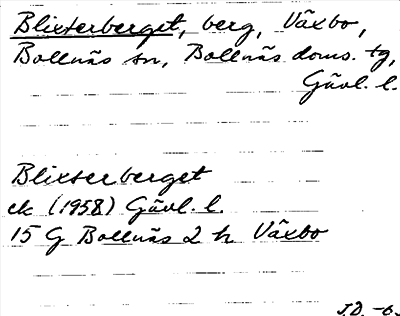 Blixterberget, berg, Växbo,
Bollnäs sn, Bollnäs doms. tg,
Gävl. l.
Blixterberget
ek (1958) Gävl. l.
15 G Bollnäs 2 h Växbo
J.D. -6